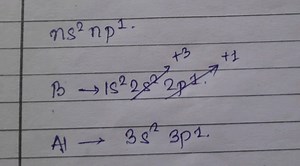 ns² np¹.
+3 +1
B → 1s² 2s² 2p¹.
Al → 3s² 3p1.